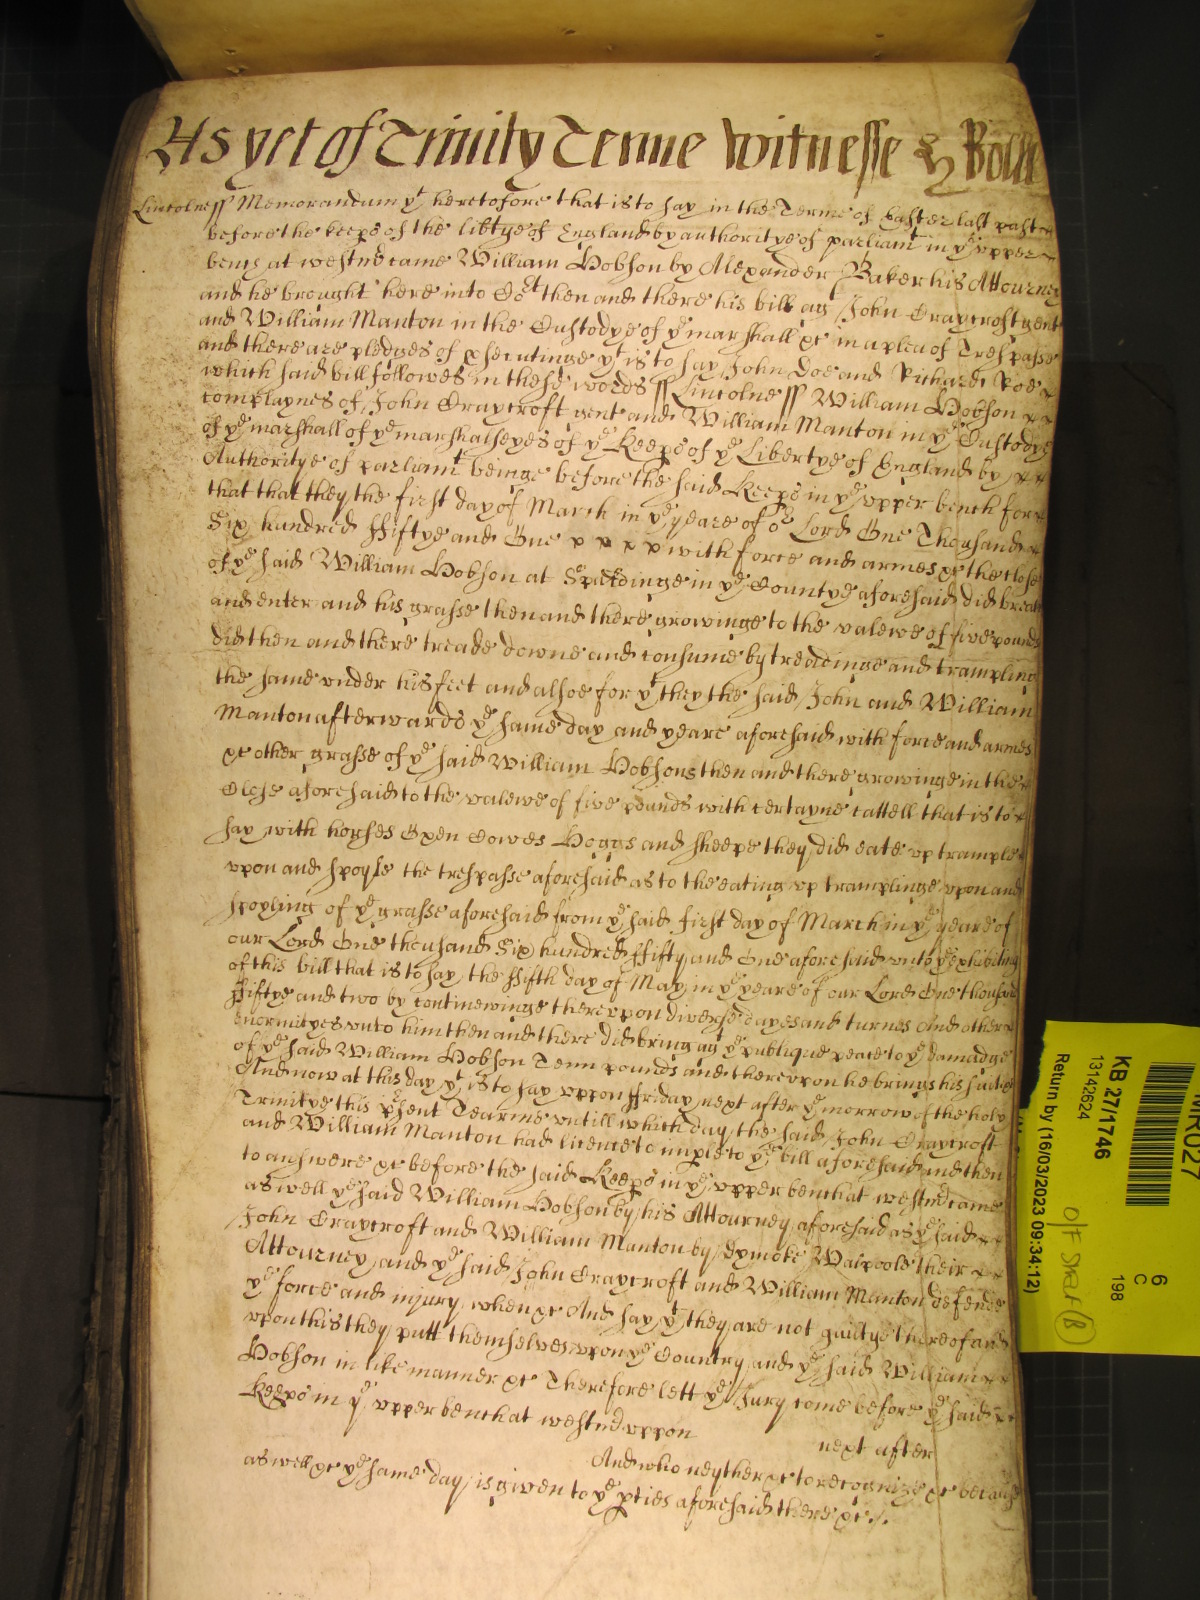 As yet of Trinity Terme Witnesse H Rolle
Lincolne ss Memorandum yt heretofore that is to say in the Terme of Easter last past
before the keeps of the libtye of England by authoritye of parliamt in ye upper
bench at westmr came William Hobson by Alexander Baker his Attourney
and he brought here into Cort then and there his bill agt John Craycroft gent
and William Manton in the Custodye of ye marshall &c in a plea of Trespasse
and there are pledges of psecutinge yt is to say John Doe and Richard Roe
which said bill followes in these words ss Lincolne ss William Hobson
complaynes of John Craycroft gent and William Manton in ye Custodye
of ye marshall of ye marshalseyes of ye Keeps of ye Libertye of England by
Authoritye of parliamt beinge before the said Keeps in ye upper bench for
that that they the first day of March in ye yeare of or Lord One Thousand
Six hundred ffiftye and One with force and armes &c the close
of ye said William Hobson at Spaldinge in ye Countye aforesaid did breake
and enter and his grasse then and there growinge to the valewe of five pounds
did then and there treade downe and consume by treadinge and trampling
the same under his feet and alsoe for yt they the said John and William
Manton afterwards ye same day and yeare aforesaid with force and armes
&c other grasse of ye said William Hobsons then and there growinge in the
Close aforesaid to the valewe of five pounds with certayne cattell that is to
say with horses Oxen Cowes Hoggs and sheepe they did eate up trample
upon and spoyle the trespasse aforesaid as to the eating up tramplinge upon and
spoyling of ye grasse aforesaid from ye said first day of March in ye yeare of
our Lord One thousand Six hundred ffifty and One aforesaid unto ye exhibiting
of this bill that is to say the ffifth day of May in ye yeare of our Lord One thousand
ffiftye and two by continewinge thereupon diverse dayes and turnes And other
enormityes unto him then and there did bring agt ye publique peace to ye damadge
of ye said William Hobson Tenn pounds and thereupon he brings his suite &c
And now at this day yt is to say uppon ffriday next after ye morrow of the holy
Trinitye this psent Tearme untill which day the said John Craycroft
and William Manton had licence to imple to ye bill aforesaid and then
to answere &c before the said Keeps in ye upper bench at westmr came
as well ye said William Hobson by his Attourney aforesaid as ye said
John Craycroft and William Manton by Dymoke Walpoole their
Attourney and ye said John Craycroft and William Manton defende
ye force and injury when &c And say yt they are not guiltye thereof and
upon this they putt themselves upon ye Country and ye said William
Hobson in like manner &c Therefore lett ye Jury come before ye said
Keeps in ye upper bench at westmr uppon next after
And who neyther &c to recognize &c because
as well &c ye same day is given to ye pties aforesaid there &c
MR027
KB 27/1746
13142624
Return by (16/03/2023 09:34:12)
6
C
198